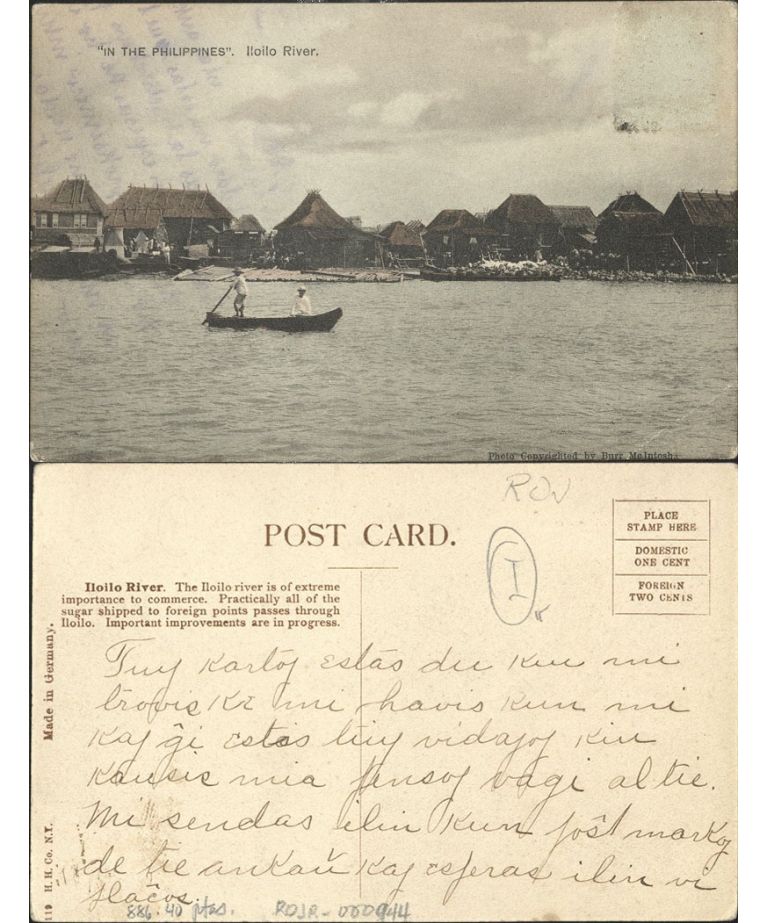 "IN THE PHILIPPINES". Iloilo River.
Photo Copyrighted by Burr McIntosh
ROJ
POST CARD.
I
PLACE
STAMP HERE
DOMESTIC
ONE CENT
FOREIGN
TWO CENTS
Iloilo River. The Iloilo river is of extreme
importance to commerce. Practically all of the
sugar shipped to foreign points passes through
Iloilo. Important improvements are in progress.
Made in Germany.
119 H. H. Co. N.Y.
Tuy kartoj estas du kiu mi
trovis ke mi havis kun mi
kaj ĝi estas tiuy vidajoj kiu
kausis mia pensoj vagi al tie.
Mi sendas ilin kun poŝt markoj
de tie ankaŭ kaj esperas ilin vi
plaĉos.
886. 40 ptas.
ROJR-000944